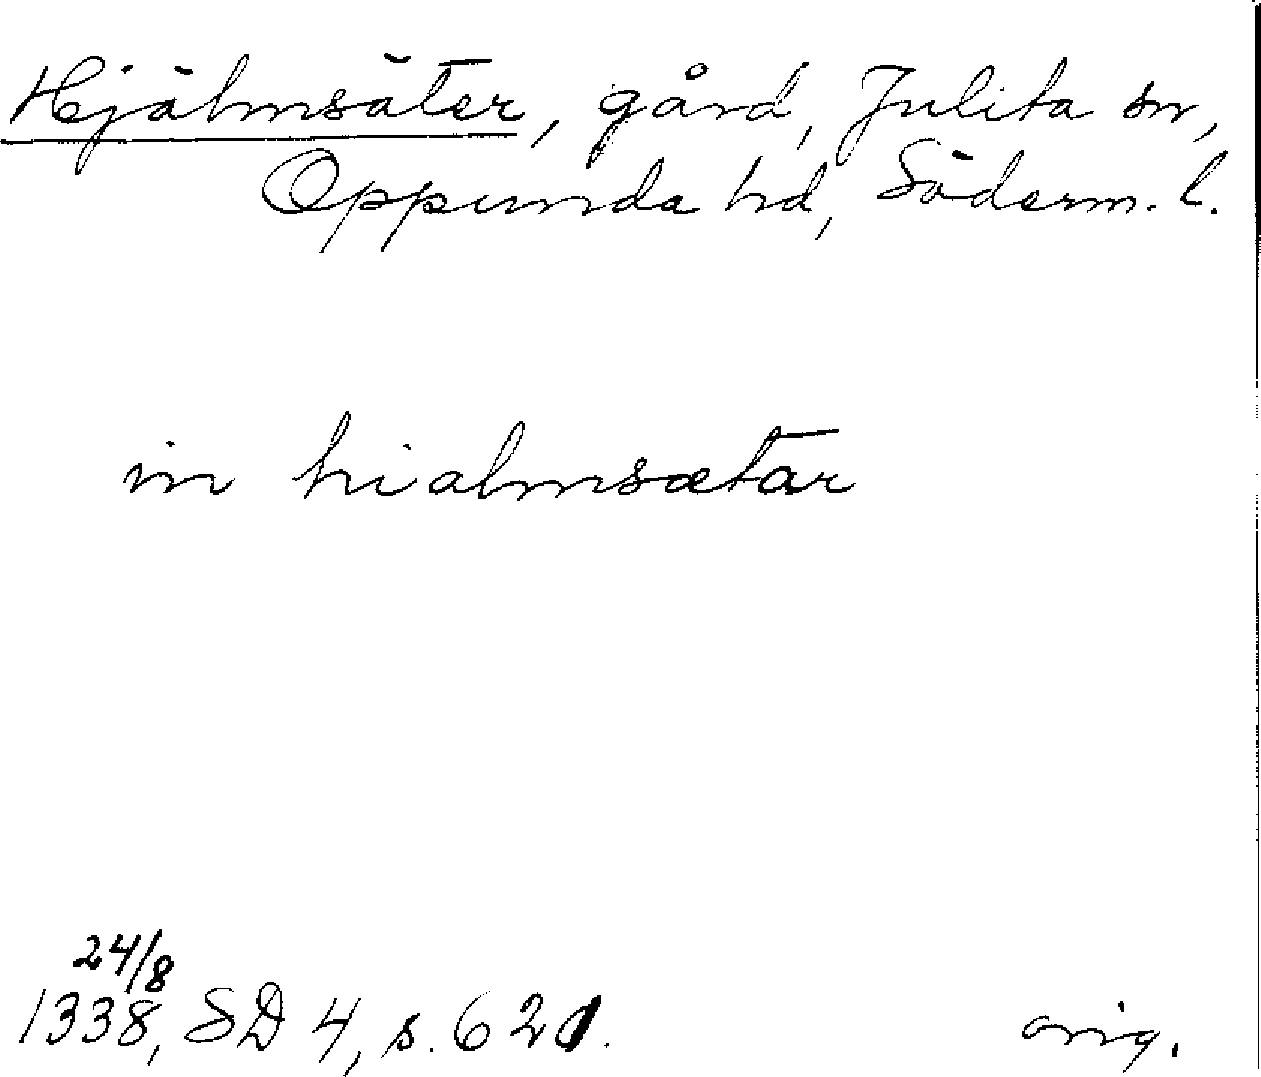 Hjälmsäter, gård, Julita sn,
Oppunda hd, Söderm. l.
in hialmsætar
24/8
1338, SD 4, s. 621. orig.